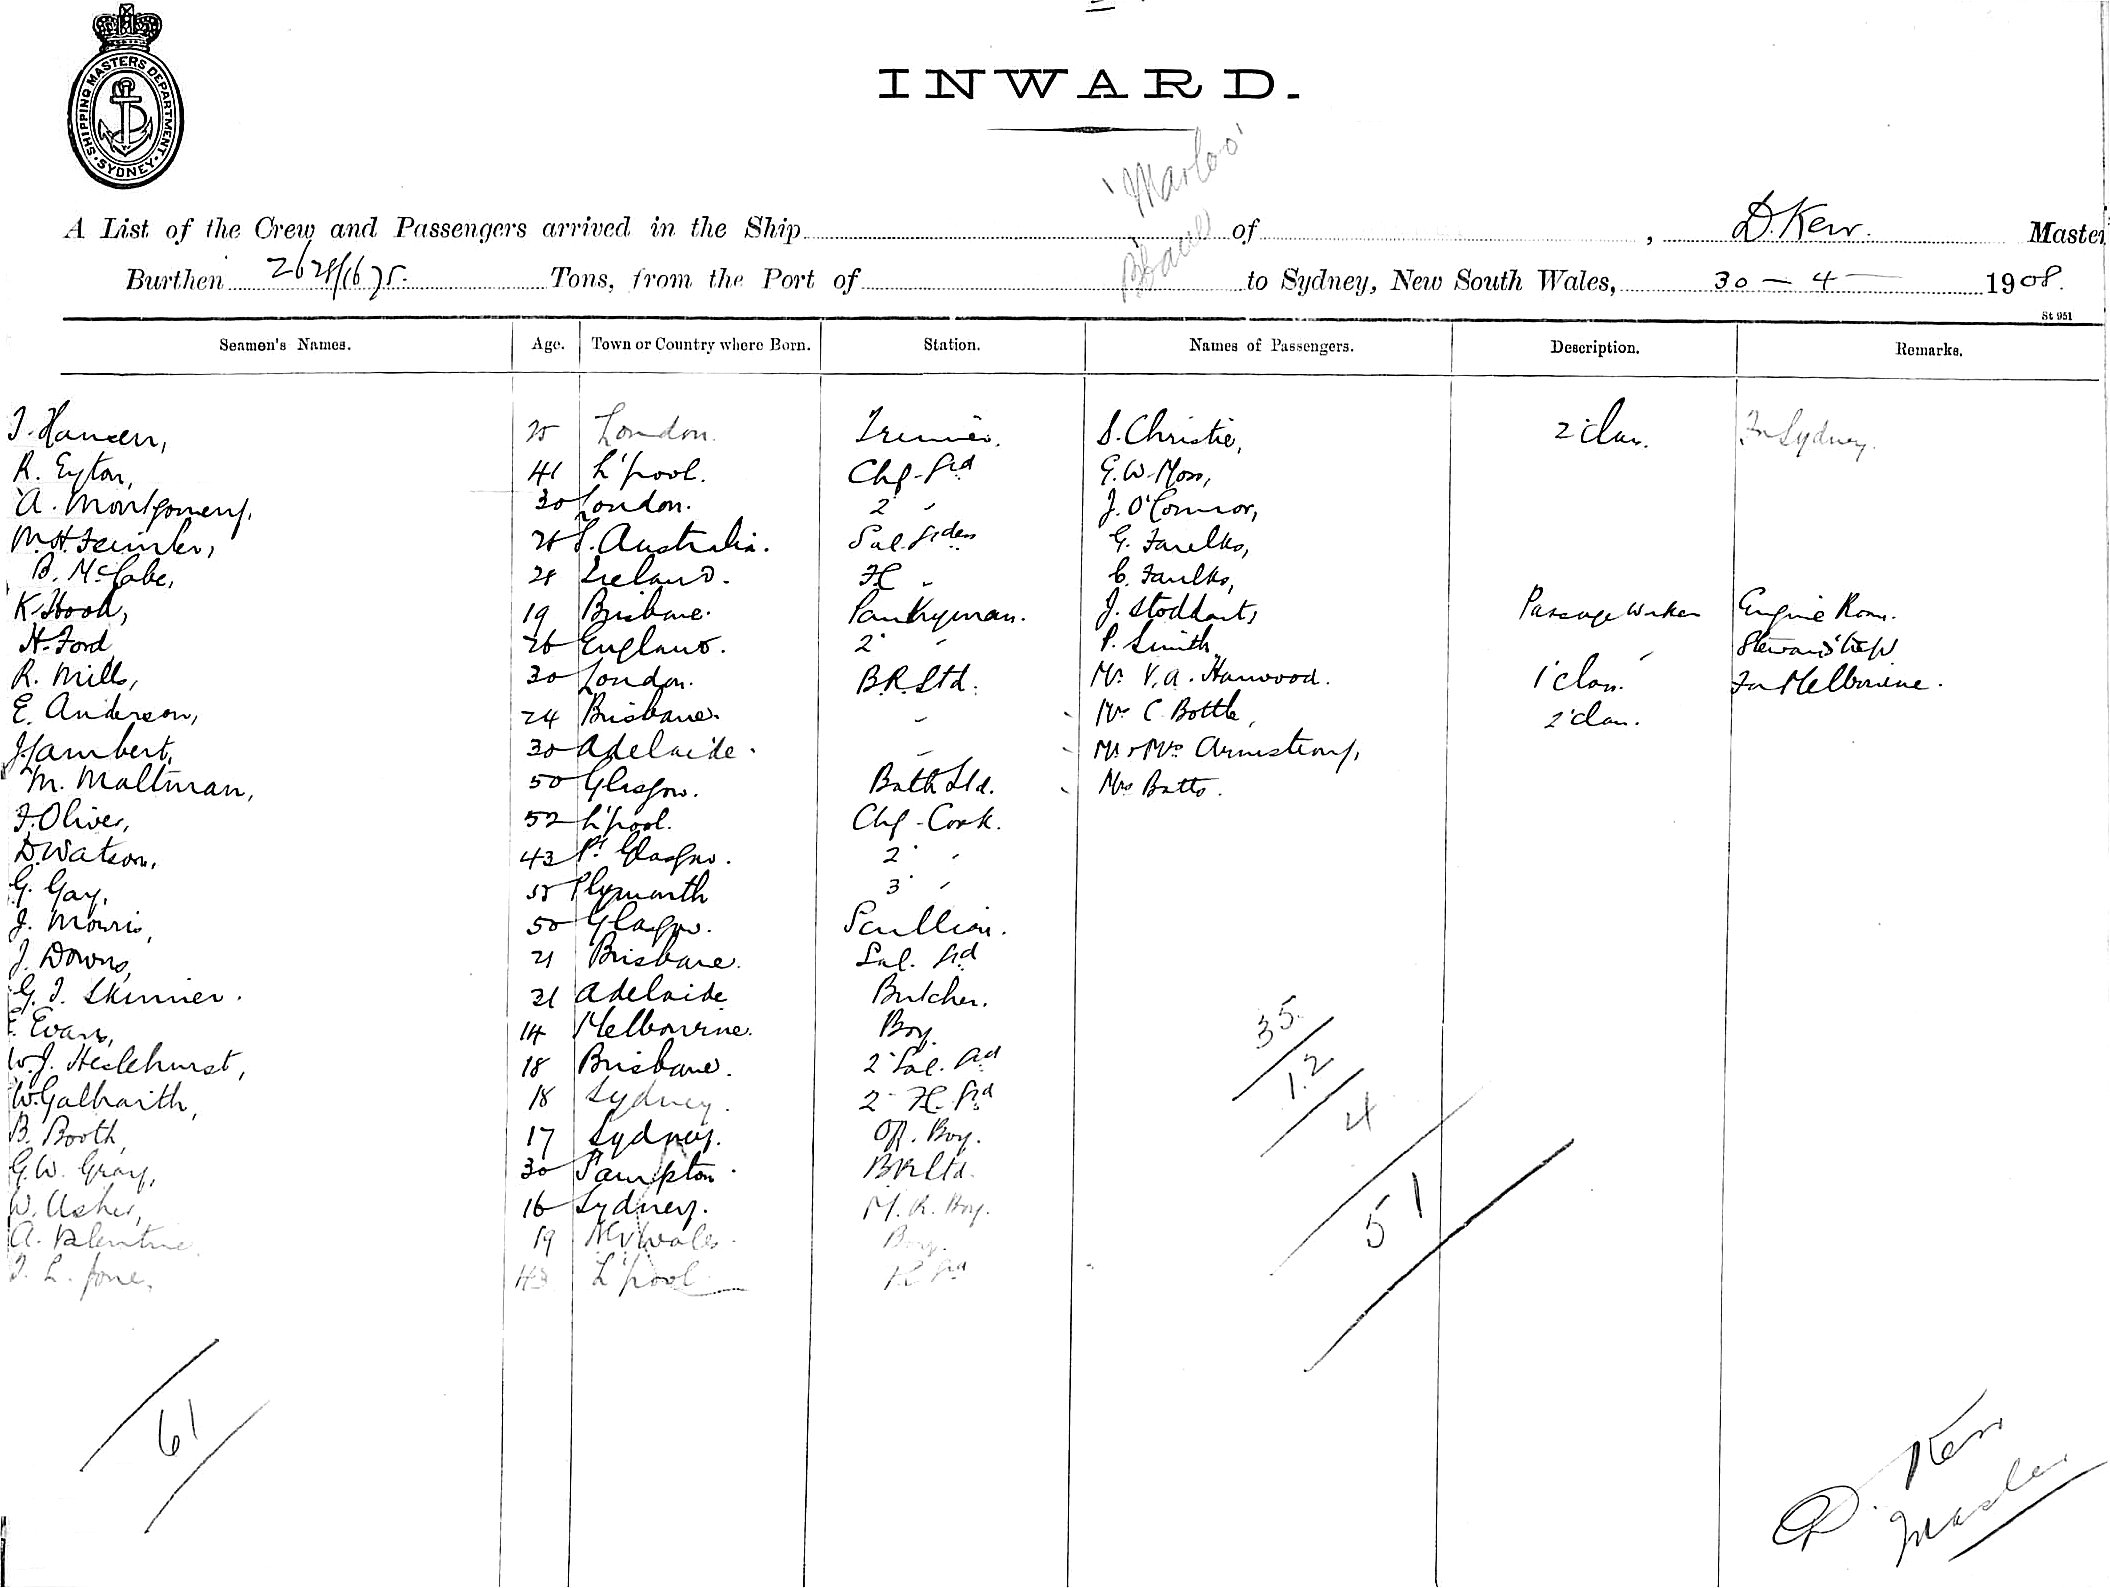 SHIPPING MASTERS DEPARTMENT · SYDNEY ·
INWARD.
'Marloo'
A List of the Crew and Passengers arrived in the Ship of , D. Kerr. Master
B'bane
Burthen 2628/1675. Tons, from the Port of to Sydney, New South Wales, 30 — 4 — 1908.
St 951
Seamen's Names. Age. Town or Country where Born. Station. Names of Passengers. Description. Remarks.
J. Hansen, 25 London. Trimmer. S. Christie, 2' class. For Sydney.
R. Eyton, 41 L'pool. Chf. Std G. W. Moss,
A. Montgomery, 30 London. 2 " J. O'Connor,
M. H. 26 S. Australia. Sal. Stdess G. Faulks,
B. McCabe, 28 Ireland. FC " C. Faulks,
K. Hook, 19 Brisbane. Pantryman. J. Stoddart, Passage Worker Engine Room.
H. Ford 26 England. 2 " P. Smith " Steward's Dept
R. Mills, 30 London. B.R. Std. Mr. V. A. Harwood. 1' class. For Melbourne.
E. Anderson, 24 Brisbane. " Mr C. Bottle, 2' class.
J. Lambert, 30 Adelaide. " Mr & Mrs Armstrong,
M. Maltman, 50 Glasgow. Bath Std. Mrs Batts.
F. Oliver, 52 L'pool. Chf - Cook.
D. Watson, 43 Pt Glasgow. 2 "
G. Gay, 55 Plymouth 3 "
J. Morris, 50 Glasgow. Scullion.
J. Downs, 21 Brisbane. Sal. Std
G. J. Skinner. 21 Adelaide Butcher.
E. Evans, 14 Melbourne. Boy.
W. J. Heslehurst, 18 Brisbane. 2 Sal. Std
W. Galbraith, 18 Sydney. 2 FC. Std
B. Booth, 17 Sydney. Off. Boy.
G. W. Gray, 30 S'ampton. B.R. Std.
W. Usher, 16 Sydney. M. R. Boy.
A. Valentine 19 N. S. Wales. Boy.
T. L. Jones, 43 L'pool FC Std
35.
12
4
51
61
D. Kerr
Master